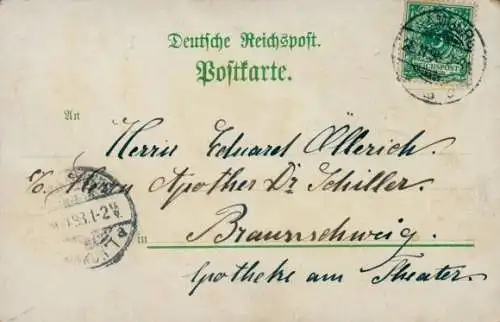 Deutsche Reichspost.
Postkarte.
REICHSPOST
An
Herrn Eduard Öllerich.
c/o. Herrn Apotheker Dr. Schiller.
.93.1-2
in
Braunschweig.
Apotheke am Theater.